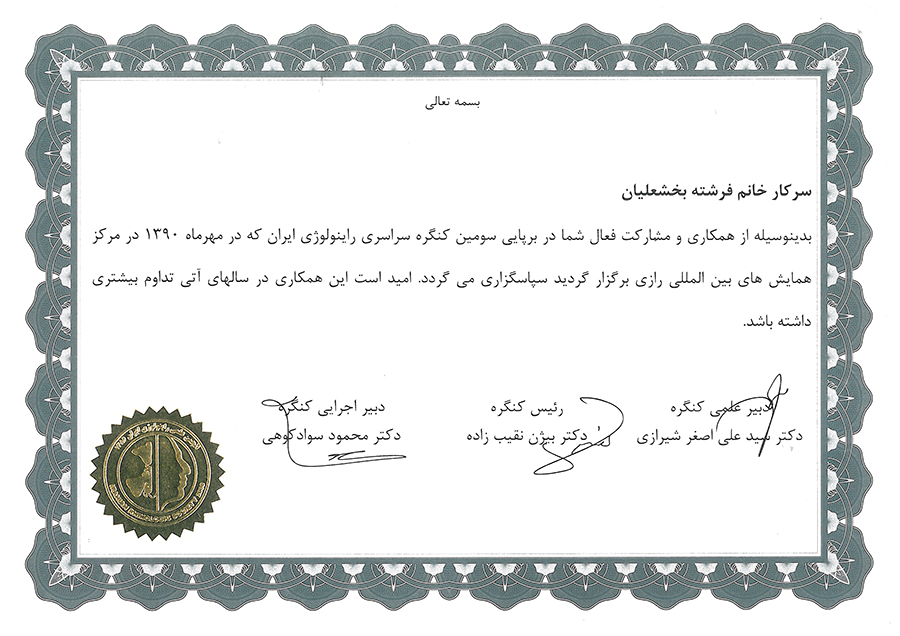 بسمه تعالی
سرکار خانم فرشته بخشعلیان
بدینوسیله از همکاری و مشارکت فعال شما در برپایی سومین کنگره سراسری راینولوژی ایران که در مهرماه ۱۳۹۰ در مرکز
همایش های بین المللی رازی برگزار گردید سپاسگزاری می گردد. امید است این همکاری در سالهای آتی تداوم بیشتری
داشته باشد.
دبیر علمی کنگره رئیس کنگره دبیر اجرایی کنگره
دکتر سید علی اصغر شیرازی دکتر بیژن نقیب زاده دکتر محمود سوادکوهی